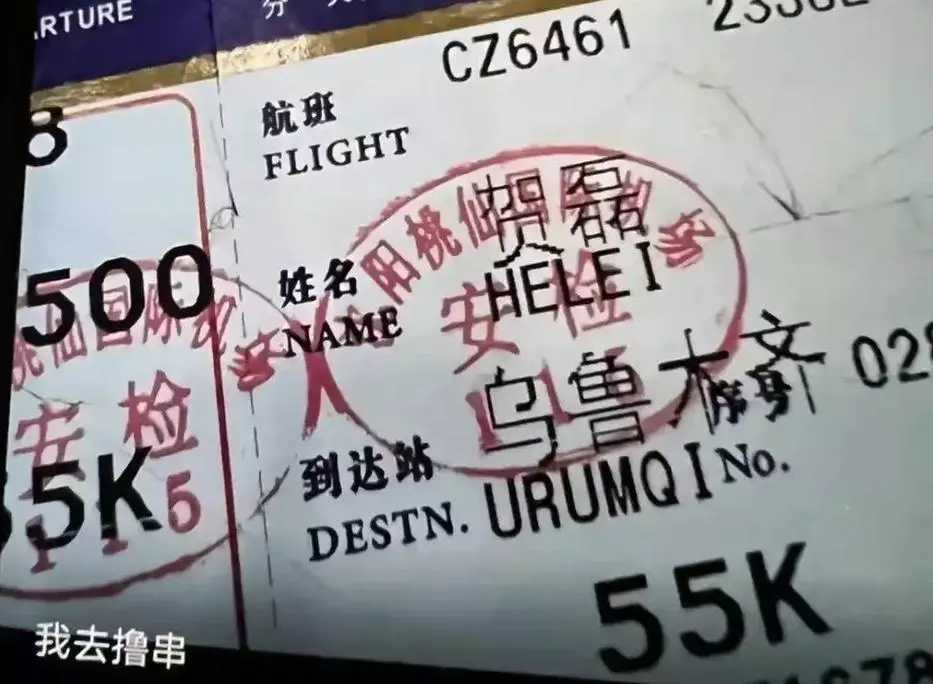 航班
FLIGHT
CZ6461
姓名
NAME
贺磊
HELEI
到达站
DESTN.
乌鲁木齐
URUMQI
序号
No.
028
500
55K
55K
桃仙国际机
安检
115
阳桃仙国际机
安检
我去撸串